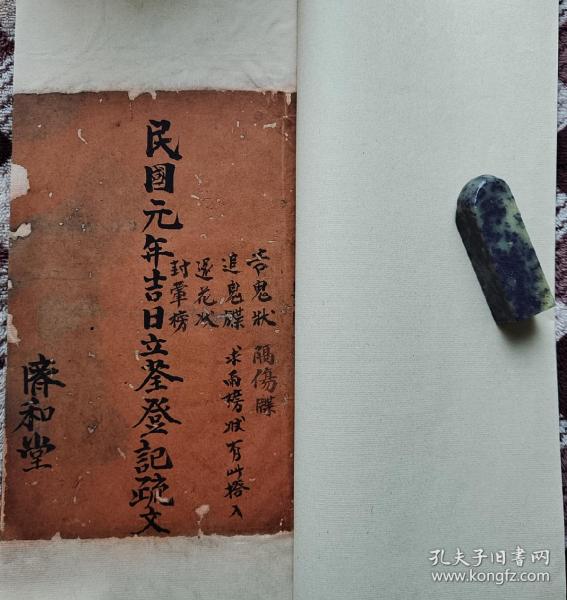 告鬼狀 隔傷牒
追鬼牒 求雨榜狀有此搭入
逐花狀
封葷榜
民國元年吉日立荃登記疏文
濟和堂
孔夫子旧书网
www.kongfz.com